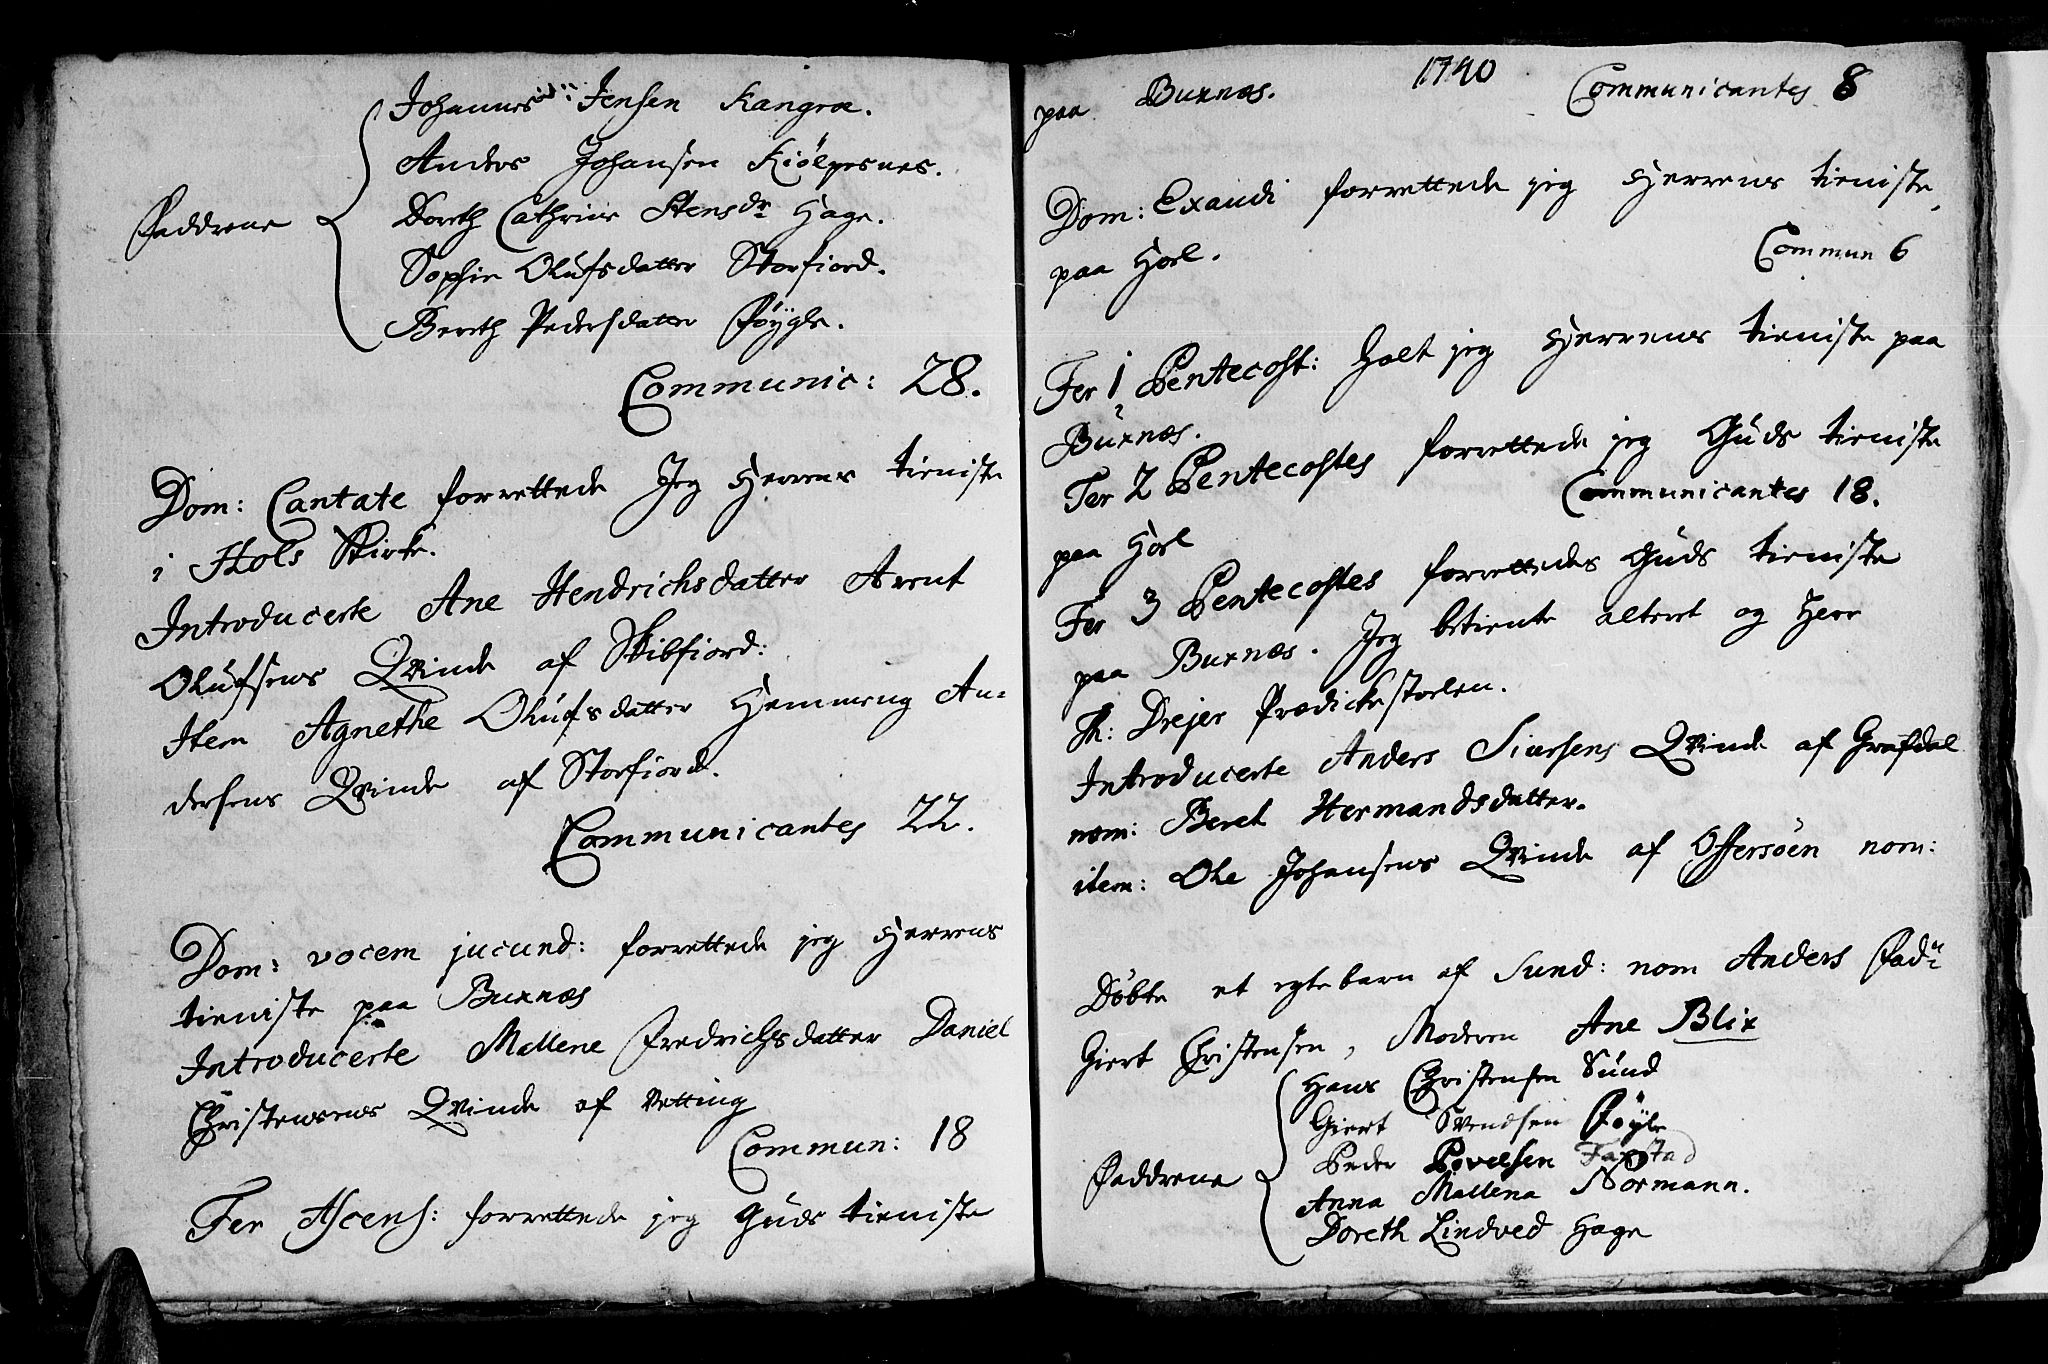 Johannes Jensen Kangroe.
Anders Johansen Kiölpesnes.
Doreth Cathrine Stensdr Hage.
Faddrene
Sophie Olufsdatter Storfiord.
Bereth Pedersdatter Föygle.
Communic: 28.
Dom: Cantate forrettede Jeg Herrens tieniste
i Hols Kirke.
Introducerte Ane Hendrichsdatter Arent
Olüfsens Qvinde af Skibfiord:
Item Agnethe Olüfsdatter Hemmeng An-
dersens Qvinde af Storfiord.
Communicantes 22.
Dom: vocem jucund: forrettede jeg Herrens
tieniste paa Buxnæs
Introducerte Mallene Fredrichsdatter Daniel
Christensens Qvinde af Vetting
Commun: 18
Fer Ascens: forrettede jeg Guds tieniste
1740
paa Buxnæs. Communicantes 8
Dom: Exaudi forrettede jeg Herrens tieniste
paa Hoel. Commun 6
Fer 1 Pentecost: holt jeg Herrens tieniste paa
Buxnæs.
Fer 2 Pentecostes forrettede jeg Guds tieniste
paa Hoel Communicantes 18.
Fer 3 Pentecostes forrettedes Guds tieniste
paa Buxnæs. Jeg betiente alteret og Herr
Th: Drejer Prædickestoelen.
Introducerte Anders Siursens Qvinde af Grafdal
nom: Beret Hermandsdatter.
item: Ole Johansens Qvinde af Offersöen nom:
Döbte et egte barn af Sund: nom Anders Fadn
Giert Christensen, Moderen Ane Blix
Hans Christensen Sünd
Giert Svendsen Föyle
Peder Povelsen Farstad
Faddrene
Anna Mallena Normann.
Doreth Lindved Hage